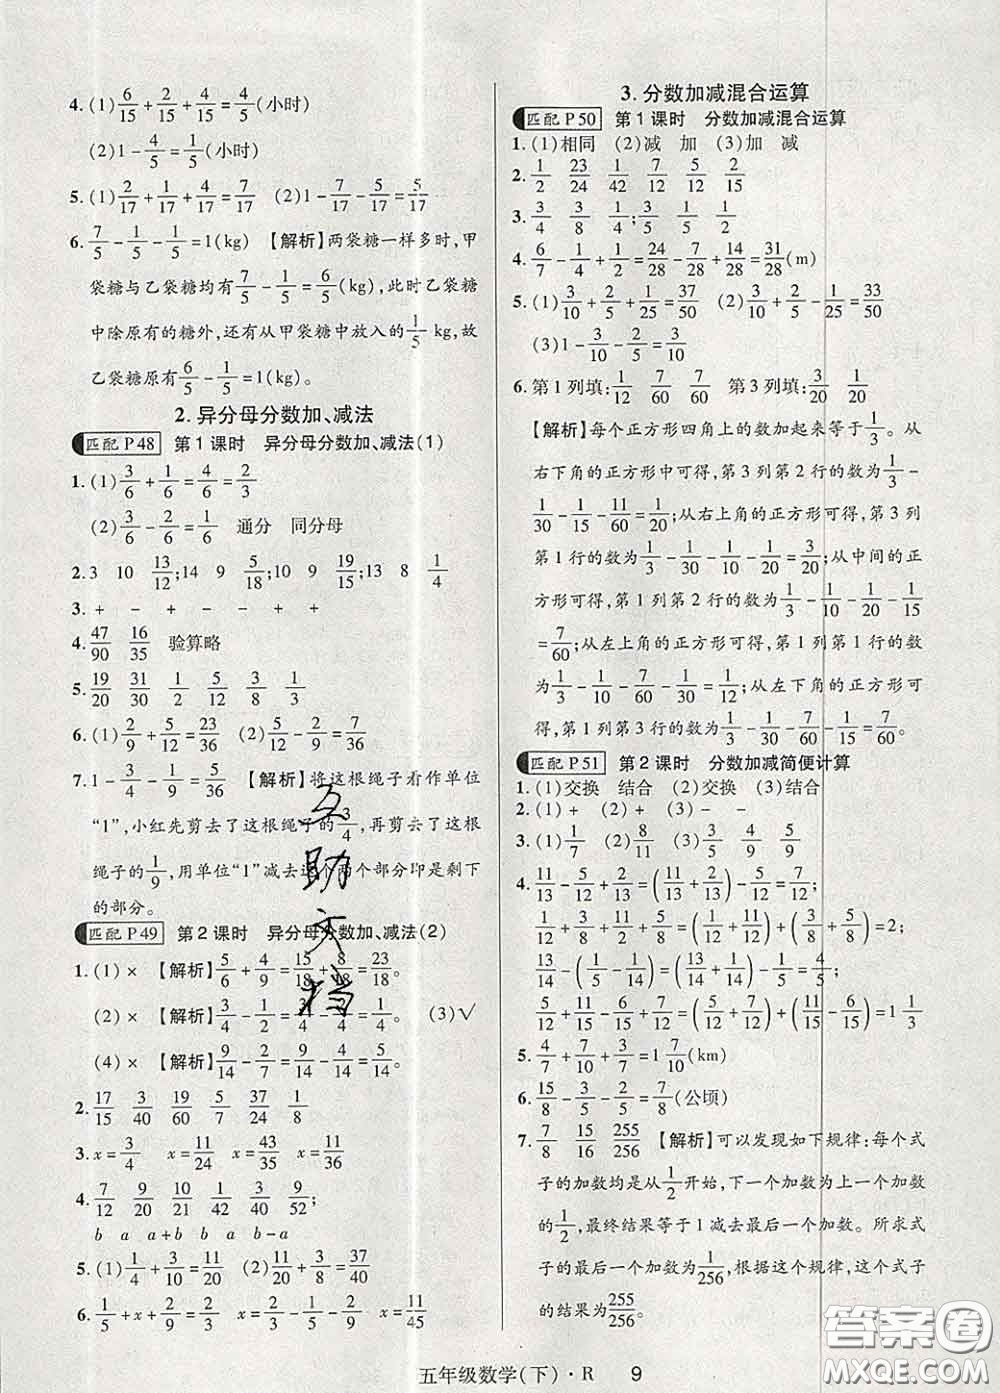 4. (1) 6/15 + 2/15 + 4/15 = 4/5 (小时)
(2) 1 - 4/5 = 1/5 (小时)
5. (1) 2/17 + 1/17 + 4/17 = 7/17 (2) 1 - 7/17 - 5/17 = 5/17
6. 7/5 - 1/5 - 1/5 = 1(kg) 【解析】两袋糖一样多时,甲
袋糖与乙袋糖均有 7/5 - 1/5 = 6/5 (kg),此时乙袋糖
中除原有的糖外,还有从甲袋糖中放入的 1/5 kg,故
乙袋糖原有 6/5 - 1/5 = 1(kg)。
2. 异分母分数加、减法
匹配 P48 第 1 课时 异分母分数加、减法(1)
1. (1) 3/6 + 1/6 = 4/6 = 2/3
(2) 3/6 - 2/6 = 1/6 通分 同分母
2. 3 10 13/12; 14 9 5/18; 10 9 19/15; 13 8 1/4
3. + - + - - +
4. 47/90 16/35 验算略
5. 19/20 31/30 1/2 5/12 3/8 1/3
6. (1) 2/9 + 5/12 = 23/36 (2) 5/12 - 2/9 = 7/36
7. 1 - 3/4 - 1/9 = 5/36 【解析】将这根绳子看作单位
“1”,小红先剪去了这根绳子的 3/4,再剪去了这根
绳子的 1/9,用单位“1”减去这个两个部分即是剩下
的部分。
匹配 P49 第 2 课时 异分母分数加、减法(2)
1. (1) × 【解析】5/6 + 4/9 = 15/18 + 8/18 = 23/18。
(2) × 【解析】3/4 - 1/2 = 3/4 - 2/4 = 1/4。 (3)√
(4) × 【解析】9/14 - 2/7 = 9/14 - 4/14 = 5/14。
2. 17/15 3/40 19/60 5/7 33/40 1/8
3. x = 3/4 x = 11/24 x = 43/35 x = 11/36
4. 7/12 9/20 19/40 3/40 9/52;
b a a+b a b-a
5. (1) 1/4 + 3/10 = 11/20 (2) 11/20 + 3/8 = 37/40
6. 1/5 + x + 2/9 = 2/3 x = 2/3 - 1/5 - 2/9 x = 11/45
3. 分数加减混合运算
匹配 P50 第 1 课时 分数加减混合运算
1. (1)相同 (2)减 加 (3)加 减
2. 1/2 23/24 1/42 7/12 5/12 2/15
3. 3/4 3/8 1/4; 1/4 1/2
4. 6/7 - 1/4 + 1/2 = 24/28 - 7/28 + 14/28 = 31/28 (m)
5. (1) 3/10 + 2/5 + 1/25 = 37/50 (2) 3/10 + 2/5 - 1/25 = 33/50
(3) 1 - 3/10 - 2/5 = 3/10
6. 第 1 列填: 1/12 7/60 7/60 第 3 列填: 3/20 1/20
【解析】每个正方形四角上的数加起来等于 1/3。从
右下角的正方形中可得,第 3 列第 2 行的数为 1/3 -
1/30 - 1/15 - 11/60 = 1/20; 从右上角的正方形可得,第 3 列
第 1 行的数为 1/3 - 1/12 - 1/20 = 3/20; 从中间的正
方形可得,第 1 列第 2 行的数为 1/3 - 1/10 - 1/20 - 1/15
= 7/60; 从左上角的正方形可得,第 1 列第 1 行的数
为 1/3 - 1/10 - 7/60 - 1/30 = 1/12; 从左下角的正方形可
得,第 1 列第 3 行的数为 1/3 - 1/30 - 7/60 - 1/15 = 7/60。
匹配 P51 第 2 课时 分数加减简便计算
1. (1)交换 结合 (2)交换 (3)结合
2. (1) + (2) + (3) - -
3. (1) 7/15 (2) 8/11 (3) 4/9
4. 11/13 - 5/12 + 2/13 = (11/13 + 2/13) - 5/12 = 7/12;
1/12 + 9/11 + 2/11 + 5/12 = (1/12 + 5/12) + (9/11 + 2/11) = 1 1/2;
13/14 - 1/5 + 1/14 = (13/14 + 1/14) - 1/5 = 1 - 1/5 = 4/5;
5/12 + 11/15 - 1/12 - 6/15 = (5/12 - 1/12) + (11/15 - 6/15) = 1 1/3
5. 4/7 + 7/10 + 3/7 = 1 7/10 (km)
6. 15/8 - 3/5 - 2/5 = 7/8 (公顷)
7. 7/8 15/16 255/256 【解析】可以发现如下规律:每个式
子的加数均是从 1/2 开始,下一个加数为上一个加数
的 1/2,最终结果等于 1 减去最后一个加数。所求式
子的最后一个加数为 1/256,根据这个规律,这个式子
的结果为 255/256。
五年级数学(下)·R 9
互助文档
答案圈
MXQE.COM